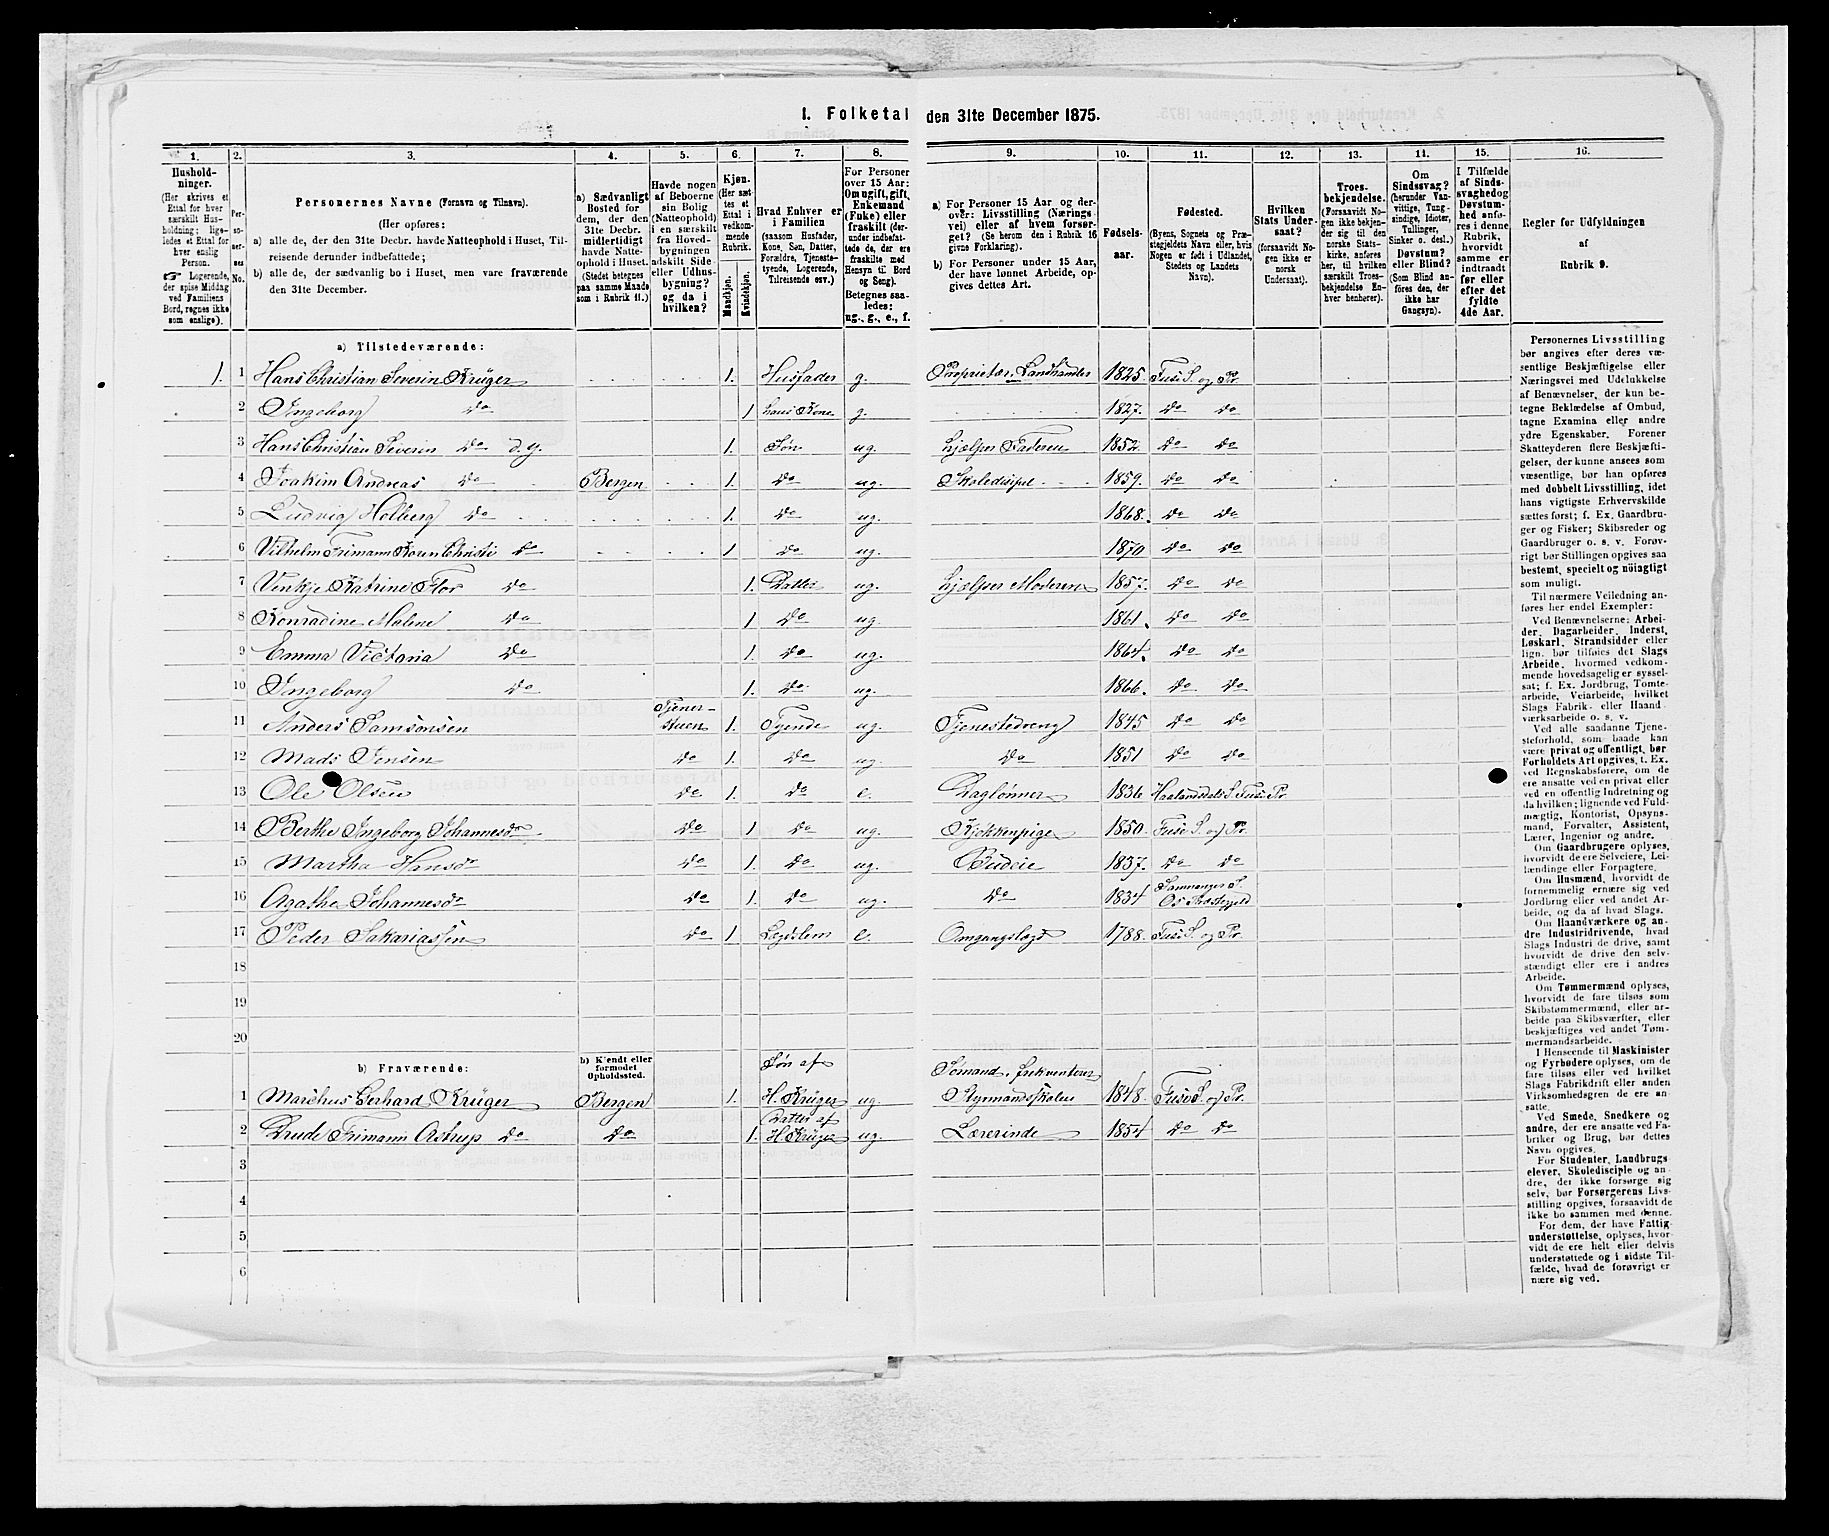 1. Folketal den 31te December 1875.
1. 2. 3. 4. 5. 6. 7. 8. 9. 10. 11. 12. 13. 14. 15. 16.
Hushold-
ninger.
(Her skrives et
Ettal for hver
særskilt Hus-
holdning; lige-
ledes et Ettal for
hver enslig
Person.
☞ Logerende,
der spise Middag
ved Familiens
Bord, regnes ikke
som enslige).
Per-
so-
ner-
nes
No.
Personernes Navne (Fornavn og Tilnavn).
(Her opføres:
a) alle de, der den 31te Decbr. havde Natteophold i Huset, Til-
reisende derunder indbefattede;
b) alle de, der sædvanlig bo i Huset, men vare fraværende
den 31te December.
a) Sædvanligt
Bosted for
dem, der den
31te Decbr.
midlertidigt
havde Natte-
ophold i Huset.
(Stedet betegnes
paa samme Maade
som i Rubrik 11.)
Havde nogen
af Beboerne
sin Bolig
(Natteophold)
i en særskilt
fra Hoved-
bygningen
adskilt Side
eller Udhus-
bygning?
og da i
hvilken?
Kjøn.
(Her sæt-
tes et
Ettal i
vedkom-
mende
Rubrik.
Mandkjøn.
Kvindekjøn.
Hvad Enhver er
i Familien
(saasom Husfader,
Kone, Søn, Datter,
Forældre, Tjeneste-
tyende, Logerende,
Tilreisende osv.)
For Personer
over 15 Aar:
Om ugift, gift,
Enkemand
(Enke) eller
fraskilt (der-
under indbefat-
tede de, der ere
fraskilte med
Hensyn til Bord
og Seng).
Betegnes saa-
ledes:
ug., g., e., f.
a) For Personer 15 Aar og der-
over: Livsstilling (Nærings-
vei) eller af hvem forsør-
get? (Se herom den i Rubrik 16
givne Forklaring).
b) For Personer under 15 Aar,
der have lønnet Arbeide, op-
gives dettes Art.
Fødsels-
aar.
Fødested.
(Byens, Sognets og Præ-
stegjeldets Navn eller, hvis
Nogen er født i Udlandet,
Stedets og Landets
Navn).
Hvilken
Stats Under-
saat?
(forsaavidt No-
gen ikke er
norsk
Undersaat).
Troes-
bekjendelse.
(Forsaavidt No-
gen ikke bekjen-
der sig til den
norske Stats-
kirke, anføres
her, til hvilken
særskilt Troes-
bekjendelse En-
hver henhører).
Om
Sindssvag?
(herunder Van-
vittige, Tung-
sindige, Idioter,
Tullinger,
Sinker o. desl.)
Døvstum?
eller Blind?
(Som Blind an-
føres den, der
ikke har
Gangsyn).
I Tilfælde
af Sinds-
svaghed og
Døvstum-
hed anfø-
res i denne
Rubrik,
hvorvidt
samme er
indtraadt
før eller
efter det
fyldte
4de Aar.
Regler for Udfyldningen
af
Rubrik 9.
a) Tilstedeværende:
1. 1 Hans Christian Severin Krüger 1. Husfader g. Proprietær, Landhandler 1825. Fuse S. og Pr.
2 Ingeborg do 1 hans Kone g. 1827. do do
3 Hans Christian Severin do d. y. 1. Søn ug. hjælper Faderen 1852. do do
4 Joakim Andreas do Bergen 1. do ug. Skoledisipel 1859. do do
5 Ludvig Holberg do 1. do ug. 1868. do do
6 Vilhelm Frimann Koren Christi do 1 do ug. 1870 do do
7 Venkje Katrine Flor do 1. Datter ug. hjælper Moderen 1857. do do
8 Konradine Malene do 1 do ug. 1861. do do
9 Emma Victoria do 1. do ug. 1864. do do
10 Ingeborg do 1. do ug. 1866. do do
Tjener-
11 Anders Samsonsen stuen 1. Tyende ug. Tjenestedreng 1845 do do
12 Mads Jensen do 1. do ug. do 1851 do do
13 Ole Olsen do 1. do e. Daglønner 1836 Haalandsdals S. Fuse Pr.
14 Berthe Ingeborg Johannesdr do 1 do ug. Kjøkkenpige 1850. Fuse S. og Pr.
15 Martha Hansdr do 1. do ug. Budeie 1837. do do
16 Agathe Johannesdr do 1. do ug. do 1834 Samnanger S. Os Præstegjeld
17 Peder Sakariassen do 1 Legdslem e. Omgangslægd 1788. Fuse S. og Pr.
18
19
20
b) Fraværende:
b) Kjendt eller
formodet
Opholdssted.
Søn af
Sømand, frekventerer
1 Marchus Gerhard Krüger Bergen 1. H. Krüger ug. Styrmandsskolen 1848. Fuse S. og Pr.
Datter af
2 Drude Frimann Astrup do do 1. H. Krüger ug. Lærerinde 1854 do do
3
4
5
6
Personernes Livsstilling
bør angives efter deres væ-
sentlige Beskjæftigelse eller
Næringsvei med Udelukkelse
af Benævnelser, der kun be-
tegne Beklædelse af Ombud,
tagne Examina eller andre
ydre Egenskaber. Forener
Skatteyderen flere Beskjæfti-
gelser, der kunne ansees som
væsentlige, bør han opføres
med dobbelt Livsstilling, idet
hans vigtigste Erhvervskilde
sættes først; f. Ex. Gaardbru-
ger og Fisker; Skibsreder og
Gaardbruger o. s. v. Forøv-
rigt bør Stillingen opgives saa
bestemt, specielt og nøiagtigt
som muligt.
Til nærmere Veiledning an-
føres her endel Exempler:
Ved Benævnelserne: Arbei-
der, Dagarbeider, Inderst,
Løskarl, Strandsidder eller
lign. bør tilføies det Slags
Arbeide, hvormed vedkom-
mende hovedsagelig er syssel-
sat; f. Ex. Jordbrug, Tomte-
arbeide, Veiarbeide, hvilket
Slags Fabrik- eller Haand-
værksarbeide o. s. v.
Ved alle saadanne Tjene-
steforhold, som baade kan
være privat og offentligt, bør
Forholdets Art opgives, t. Ex.
ved Regnskabsførere, om de
ere ansatte ved en privat eller
ved en offentlig Indretning og
da hvilken; lignende ved Fuld-
mægtig, Kontorist, Opsyns-
mand, Forvalter, Assistent,
Lærer, Ingeniør og andre.
Om Gaardbrugere oplyses,
hvorvidt de ere Selveiere, Lei-
lændinge eller Forpagtere.
Om Husmænd, hvorvidt de
fornemmelig ernære sig ved
Jordbrug eller ved andet Ar-
beide, og da af hvad Slags.
Om Haandværkere og an-
dre Industridrivende, hvad
Slags Industri de drive, samt
hvorvidt de drive den selv-
stændigt eller ere i andres
Arbeide.
Om Tømmermænd oplyses,
hvorvidt de fare tilsøs som
Skibstømmermænd, eller ar-
beide paa Skibsværfter, eller
beskjæftiges ved andet Tøm-
mermandsarbeide.
I Henseende til Maskinister
og Fyrbødere oplyses, om de
fare tilsøs eller ved hvilket
Slags Fabrikdrift eller anden
Virksomhedsgren de ere an-
satte.
Ved Smede, Snedkere og
andre, der ere ansatte ved Fa-
briker og Brug, bør dettes
Navn opgives.
For Studenter, Landbrugs-
elever, Skoledisciple og an-
dre, der ikke forsørge sig
selv, bør Forsørgerens Livs-
stilling opgives, forsaavidt de
ikke bo sammen med denne.
For dem, der have Fattig-
understøttelse, oplyses, hvor-
vidt de ere helt eller delvis
understøttede og i sidste Til-
fælde, hvad de forøvrigt er
nære sig ved.